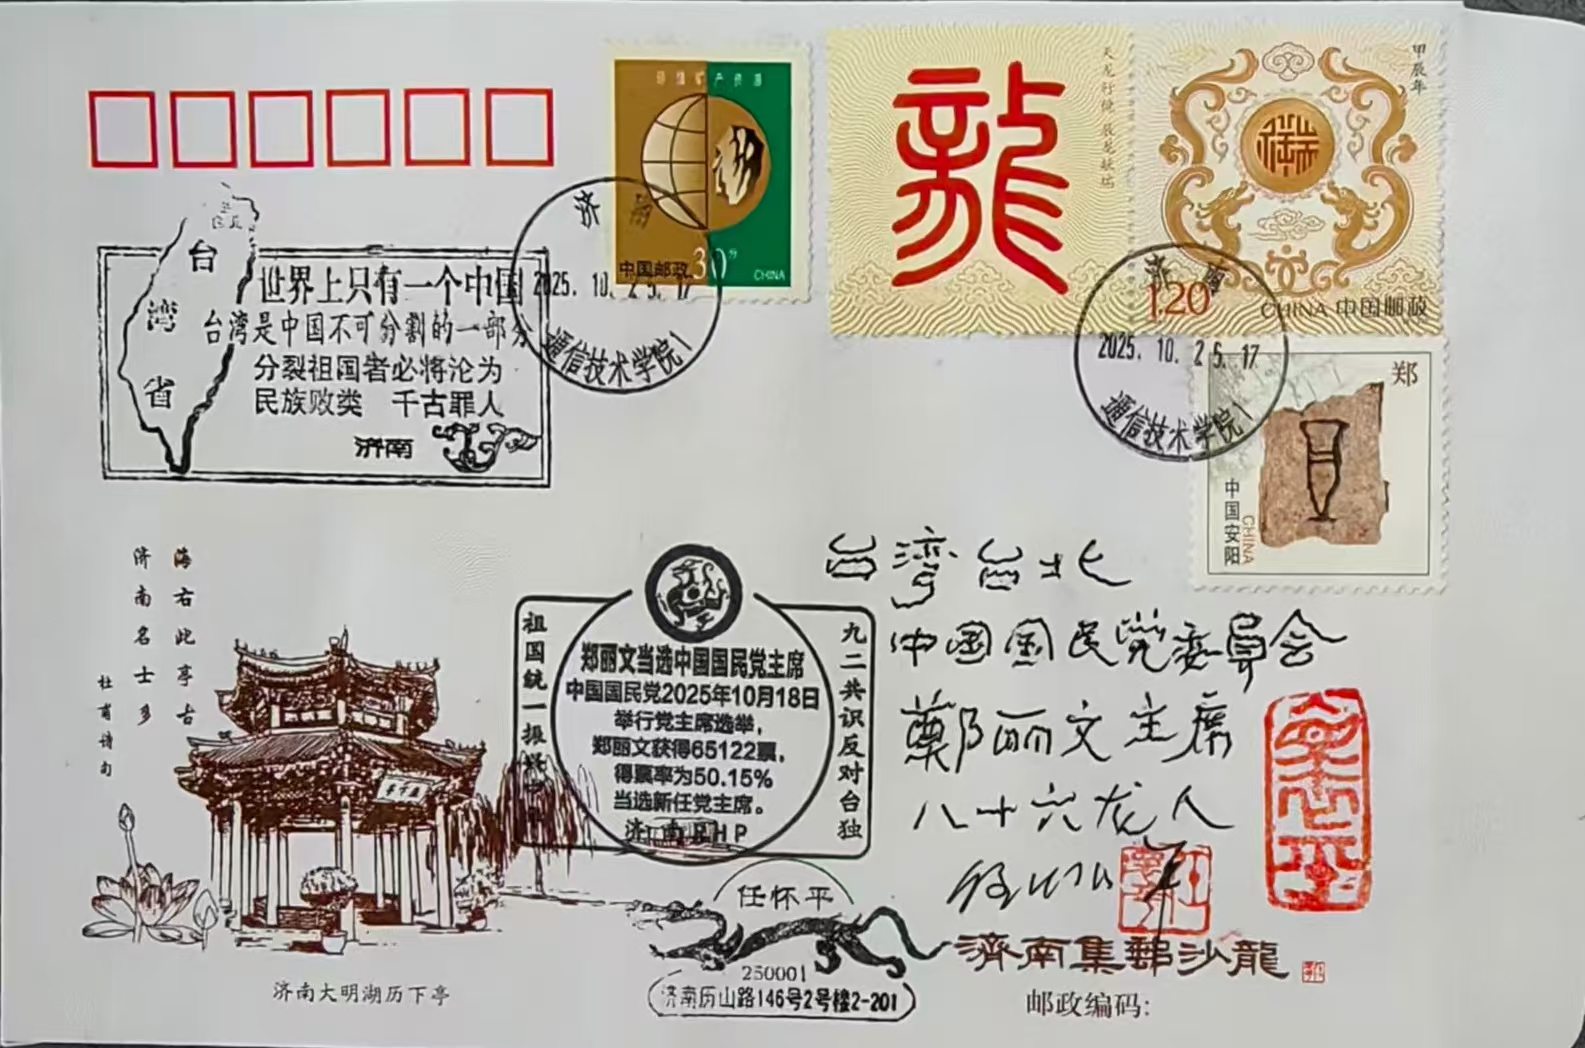 中国邮政 30分 CHINA
龍
天龙行健 辰龙献瑞
甲辰年
1.20 CHINA 中国邮政
济南
2025.10.25.17
通信技术学院1
济南
2025.10.25.17
通信技术学院1
郑
中国安阳
CHINA
台湾省
世界上只有一个中国
台湾是中国不可分割的一部分
分裂祖国者必将沦为
民族败类 千古罪人
济南
海右此亭古
济南名士多
杜甫诗句
祖国统一振兴中华
郑丽文当选中国国民党主席
中国国民党2025年10月18日
举行党主席选举,
郑丽文获得65122票,
得票率为50.15%
当选新任党主席。
济南RHP
九二共识反对台独
台湾台北
中国国民党委员会
鄭丽文主席
八十六龙人
任怀平
250001
济南历山路146号2号楼2-201
濟南集郵沙龍
邮政编码:
济南大明湖历下亭